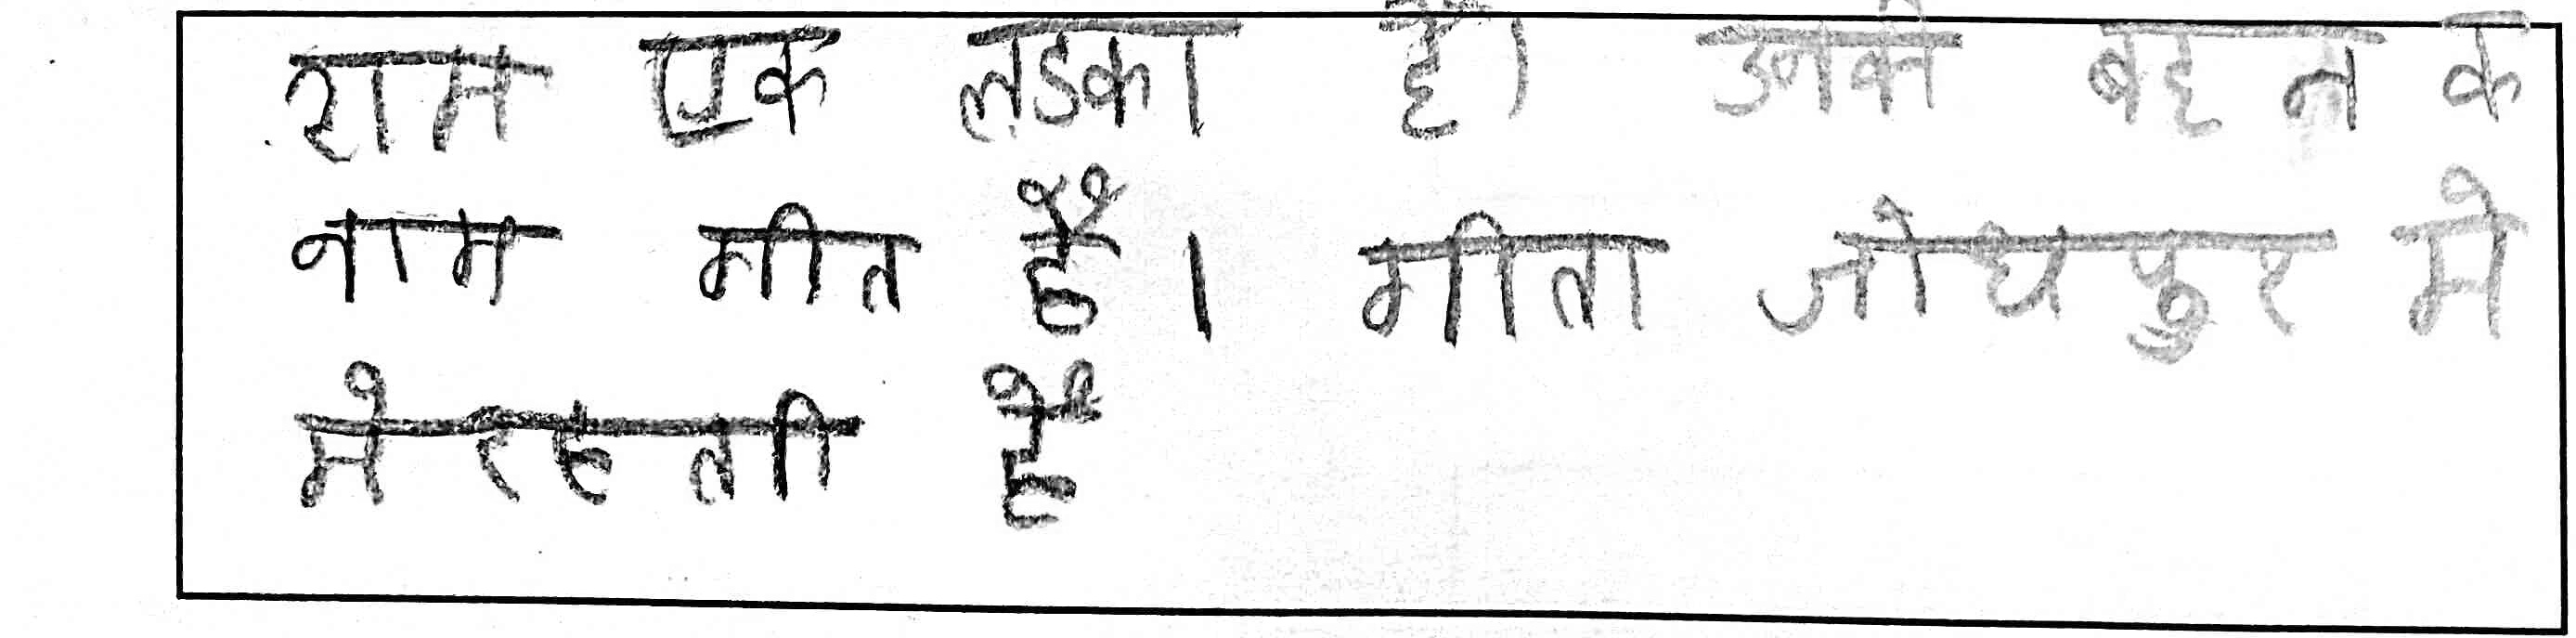 राम एक लडका है। उनके बहन क
नाम गीत हैं। गीता जोधपुर मे
मे रहती हैं